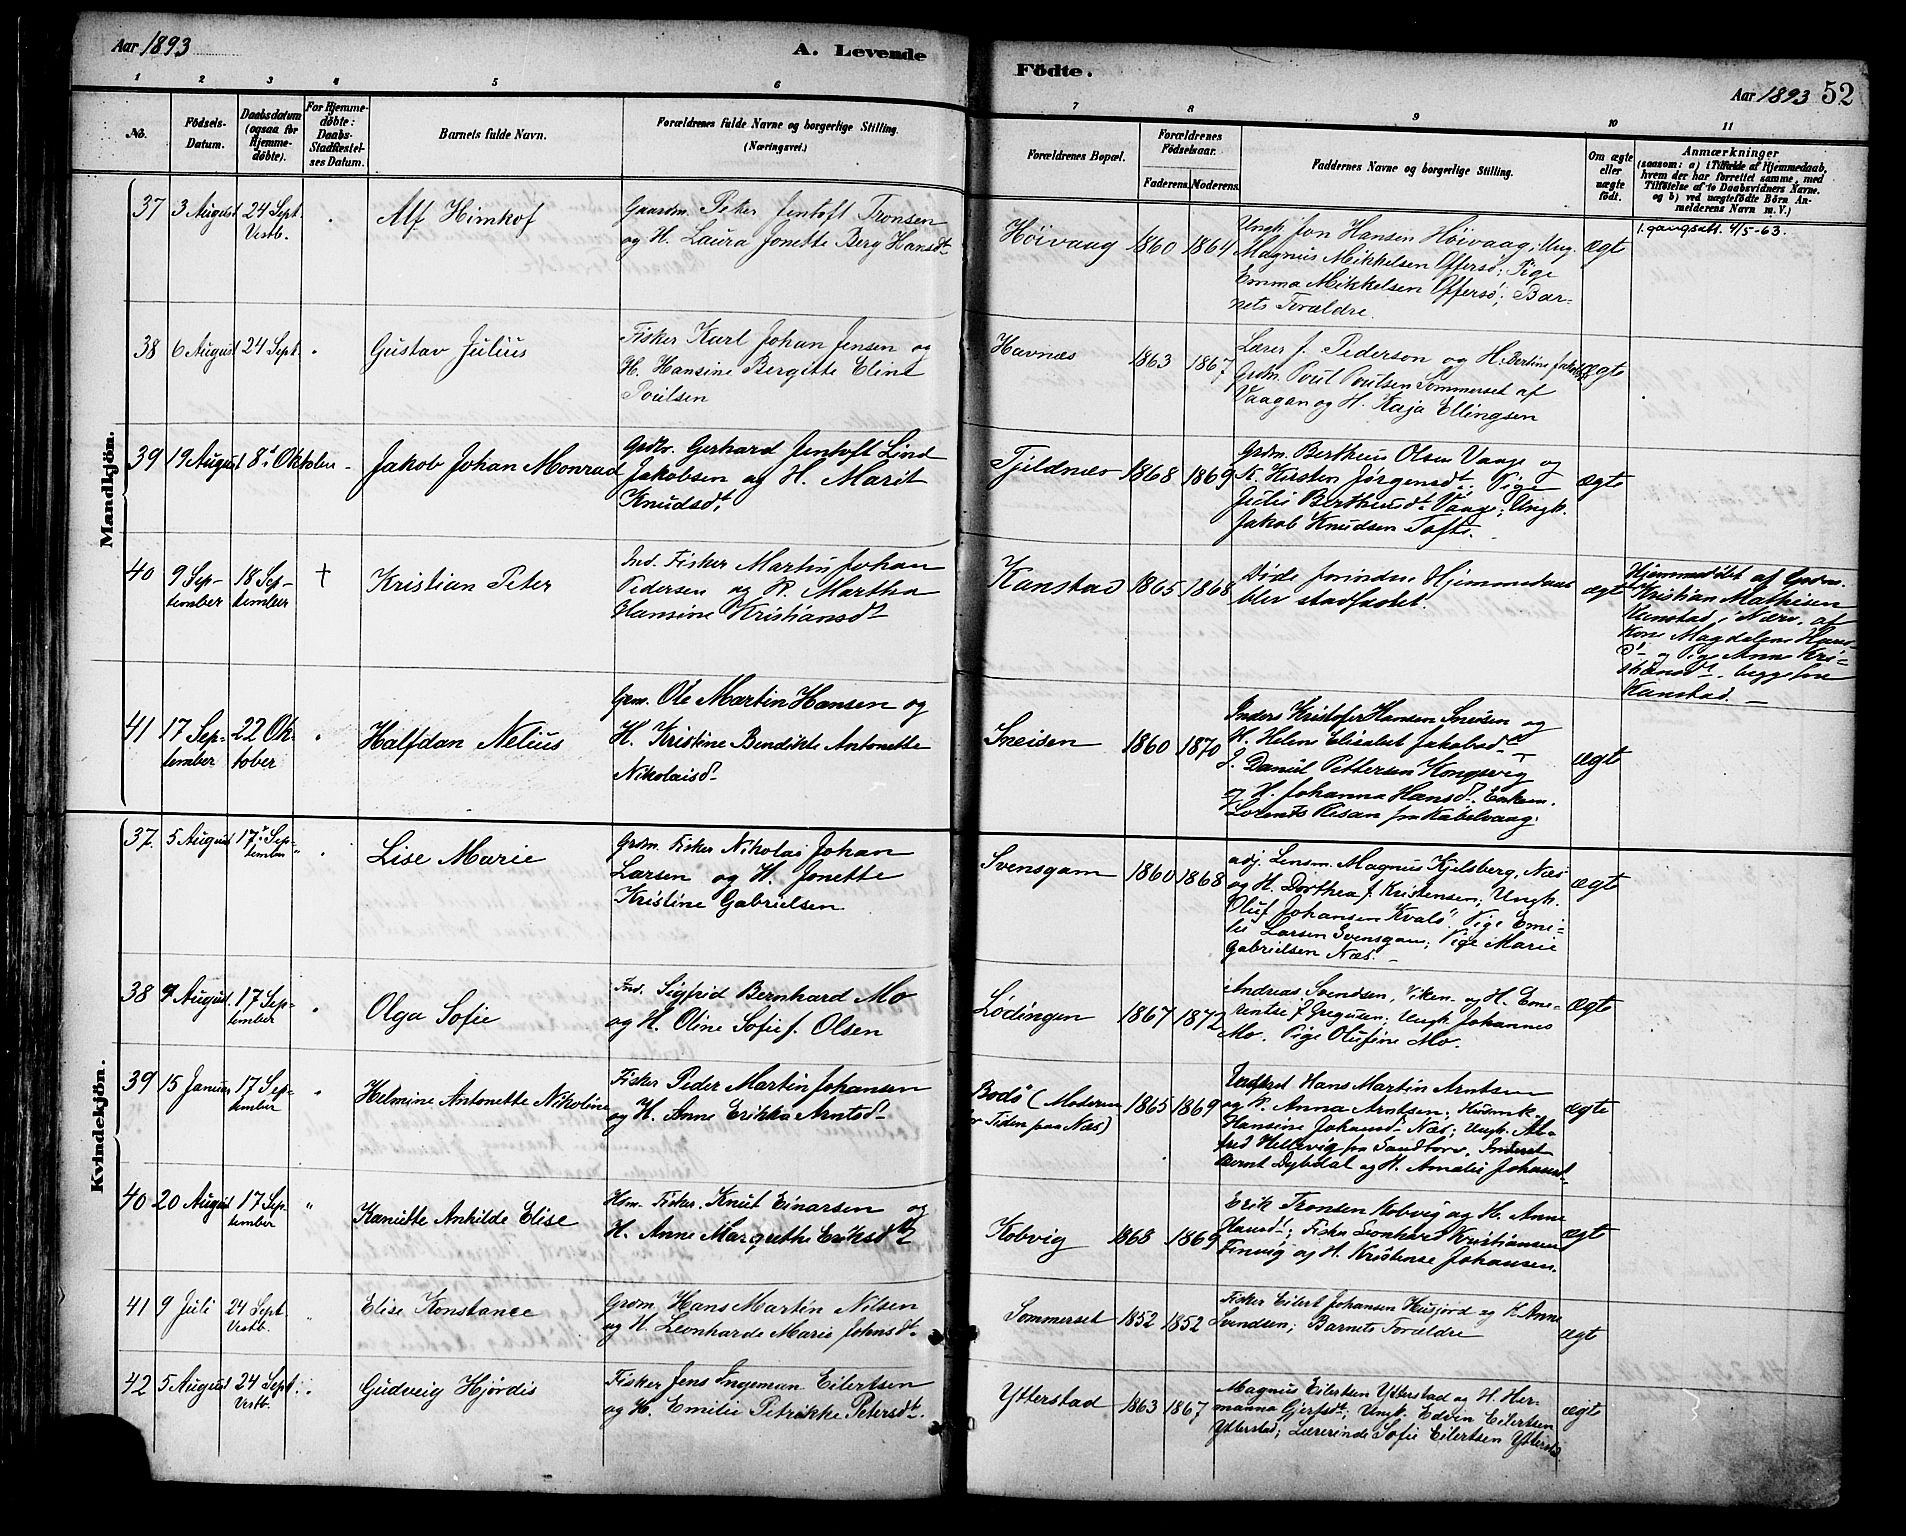 Aar 1893
A. Levende
Födte.
Aar 1893 52
1 2 3 4 5 6 7 8 9 10 11
No.
Födsels-
Datum.
Daabsdatum
(ogsaa for
Hjemme-
döbte).
For Hjemme-
döbte:
Daabs-
Stadfæstel-
ses Datum.
Barnets fulde Navn.
Forældrenes fulde Navne og borgerlige Stilling.
(Næringsvei.)
Forældrenes Bopæl.
Forældrenes
Födselsaar.
Faderens. Moderens.
Faddernes Navne og borgerlige Stilling.
Om ægte
eller
uægte
födt.
Anmærkninger
(saasom: a) i Tilfælde af Hjemmedaab,
hvem der har forrettet samme, med
Tilföielse af to Daabsvidners Navne.
og b) ved uægtefödte Börn An-
melderens Navn m. V.)
Mandkjön.
37 3 August 24 Sept
Vestb.
Alf Himkof
Gaardm. Peter Jentoft Tronsen
og H. Laura Jonette Berg Hansdt
Höivaag 1860 1864
Ungk. Jon Hansen Höivaag, Ung.
Magnus Mikkelsen Offersö; Pige
Emma Mikkelsen Offersö; Bar-
nets Forældre.
ægte
1. gangsatt. 4/5-63.
38 6 August 24 Sept. "
Gustav Julius
Fisker Karl Johan Jensen og
H. Hansine Bergitte Eline
Poulsen
Havnæs 1863 1867
Lærer J. Pederson og H. Bertine
Grdm. Poul Poulsen Sommerset af
Vaagan og H. Kaja Ellingsen
ægte
39 19 August 8de Oktober -
Jakob Johan Monrad
Grdbr. Gerhard Jentoft Lind
Jakobsen og H. Marit
Knudsdt.
Tjeldnæs 1868 1869
Grdm. Bertheus Olsen Vaage og
K. Kirsten Jørgensdt. Pige
Julie Bertheusdt Vaage; Ungk.
Jakob Knudsen Tofte.
ægte
40 9 Sep-
tember
18 Sep-
tember
†
Kristian Peter
Ind. Fisker Martin Johan
Pedersen og K. Martha
Hansine Kristiansdt
Kanstad 1865 1868
Døde forinden Hjemmedaab
blev stadfæstet.
ægte
Hjemmedöbt af Grdm.
Kristian Mathisen
Kanstad, i Nærv. af
Kone Magdalena Hans-
dt og Pige Anne Kri-
stiansdt. begge fra
Kanstad. -
41 17 Sep-
tember
22 Ok-
tober
"
Halfdan Nelius
Grm. Ole Martin Hansen og
H. Kristine Bendikte Antonette
Nikolaisd-
Sneisen 1860 1870
Inders Kristofer Hansen Sneisen og
H. Helene Elisabet Jakobsd-
J. Daniel Pettersen Kongsvig
og H. Johanna Hansd.
Lorents Risan fra Kabelvaag.
ægte
Kvindekjön.
37. 5 August 17de Sep-
tember "
Lise Marie
Grdm. Fisker Nikolai Johan
Larsen og H. Jonette
Kristine Gabrielsen
Svensgam 1860 1868
adj. Lensm. Magnus Kjelsberg, Næs
og H. Dorthea f. Kristensen; Ungk.
Oluf Johansen Kvalö. Pige Emi-
lie Larsen Svensgam; Pige Marie
Gabrielsen Næs. -
ægte
38 9 August. 17 Sep-
tember
"
Olga Sofie
Ind. Sigfrid Bernhard Mo
og H. Oline Sofie f. Olsen
Lödingen 1867 1872
Andreas Svendsen, Viken og H. Eme-
rentse f. Gregusen; Ungk. Johannes
Mo. Pige Olufine Mo.
ægte
39 15 Januar 17 Sep-
tember
"
Helmine Antonette Nikoline
Fisker Peder Martin Johansen
og H. Anne Erikka Arntsd-
Bodö (Moderen
for Tiden paa Næs) 1865 1869
Hans Martin Arntsen
og K. Anna Arntsen; Husmk.
Hansine Johansd- Næs; Ungk. Al-
fred Hellevig fra Sandtorv. Inderst
Bernt Dybdal og H. Amalie Johansdt-
ægte
40 20 August 17 Sep-
tember
"
Kanutte Anhilde Elise
Hsm. Fisker. Knut Einarsen og
H. Anne Margrethe Eriksdt
Kobvig 1868 1869
Erik Tronsen Kobvig og H. Anne
Hansdt; Fisker Leonhart Kristiansen
Finvig og H. Kristense Johansen.
ægte
41 9 Juli 24 Sept
Vestb.
"
Elise Konstance
Grdm. Hans Martin Nilsen
og H. Leonharde Marie Johnsdt.
Sommerset 1852 1852
Fisker Eilert Johansen Husjord og K. Anne
Svendsen; Barnets Forældre
ægte
42 5 August 24 Sept.
Vestb.
"
Gudveig Hjördis
Fisker Jens Ingeman Eilertsen
og H. Emilie Petrikke Petersdt.
Ytterstad 1863 1867
Magnus Eilertsen Ytterstad og H. Her-
manna Gjertsdt; Ungk. Edvin Eilertsen
Ytterstad; Lærerinde Sofie Eilertsen Ytterstd.
ægte